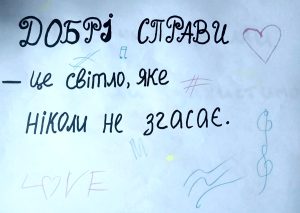 ДОБРІ СПРАВИ
— це світло, яке
ніколи не згасає.
LOVE